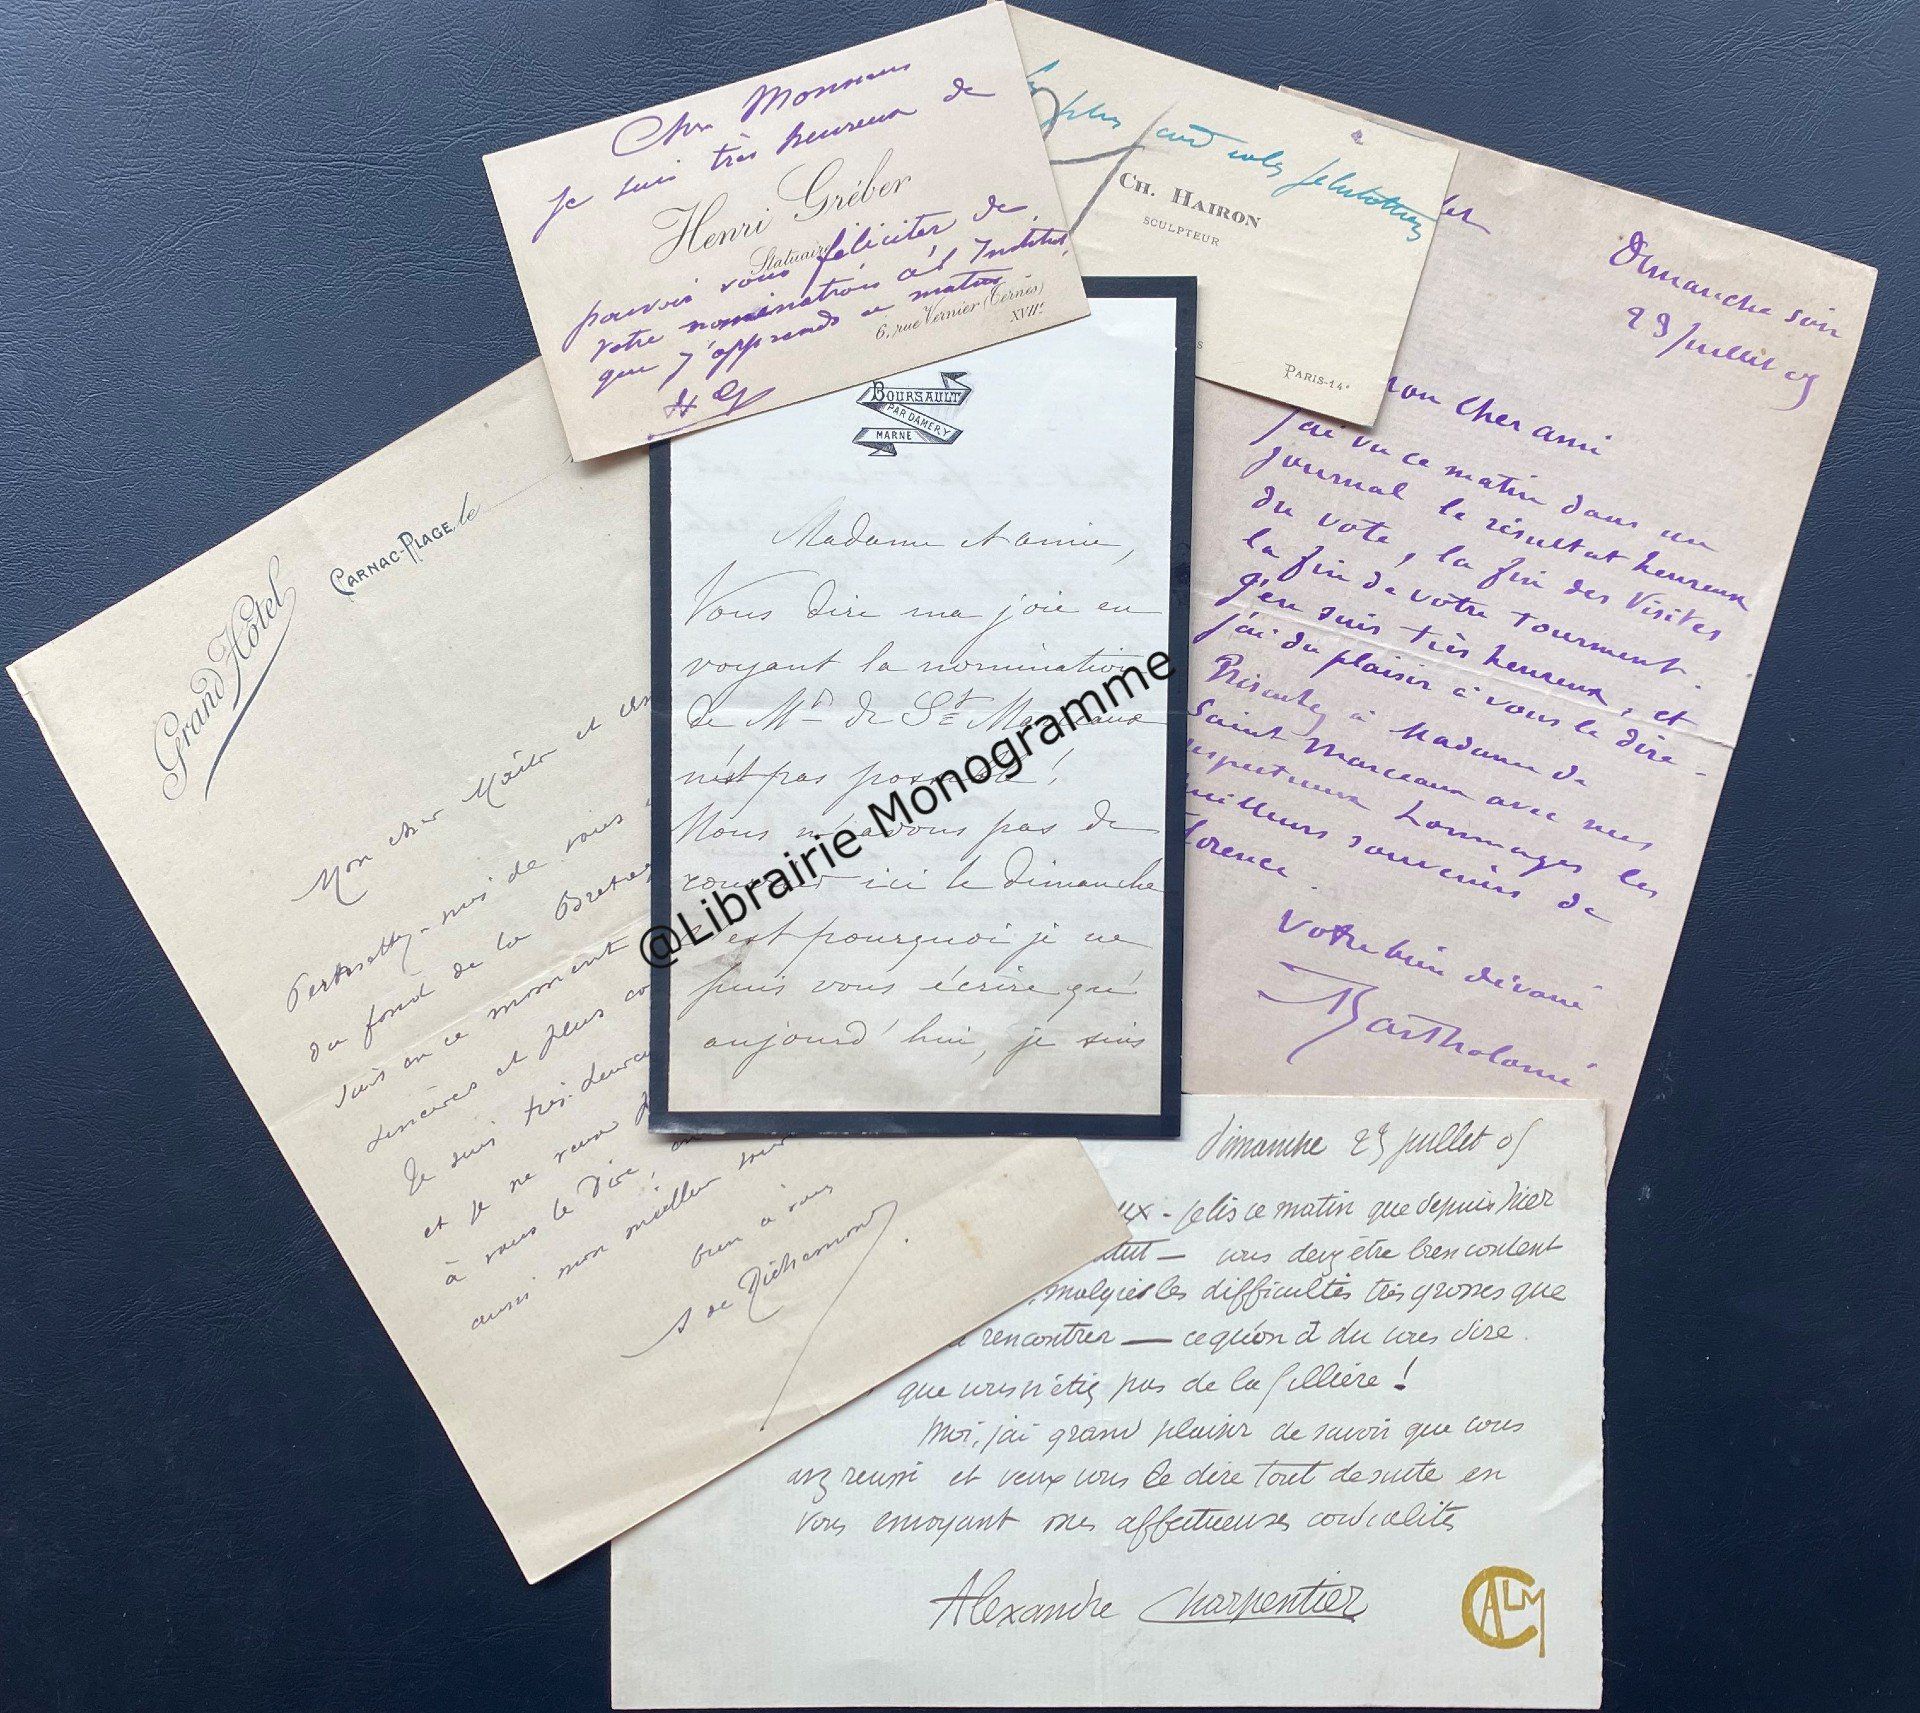 Cher Monsieur
je suis très heureux de
Henri Gréber
Statuaire
pouvoir vous féliciter de
votre nomination à l'Institut,
que j'apprends ce matin
6, rue Vernier (Ternes)
XVIIe
HG
plus tard
CH. HAIRON
SCULPTEUR
PARIS-14e
Dimanche soir
23 Juillet 05
mon cher ami
j'ai vu ce matin dans un
journal le résultat heureux
du vote, la fin des visites
la fin de votre tourment.
j'en suis très heureux, et
j'ai du plaisir à vous le dire -
Présentez à Madame de
Saint Marceaux avec mes
respectueux hommages les
meilleurs souvenirs de
Florence.
Votre bien dévoué
Bartholomé
BOURSAULT
PAR DAMERY
MARNE
Madame et amie,
Vous dire ma joie en
voyant la nomination
de Mr de St Marceaux
n'est pas possible!
Nous n'avons pas de
courrier ici le dimanche
c'est pourquoi je ne
puis vous écrire qu'
aujourd'hui, je suis
GRAND HÔTEL
CARNAC-PLAGE, le
Mon cher Maître et
Permettez-moi de vous
du fond de la Bretagne
suis en ce moment
sincères et plus
Je suis très heureux
et je ne veux
à vous le dire,
aussi mon meilleur
bien à vous
de Richemond
dimanche 23 juillet 05
ux - je lis ce matin que depuis hier
itut - vous devez être bien content
, malgré les difficultés très grosses que
rencontrer — ce qu'on a du vous dire
que vous n'étiez pas de la filière!
Moi, j'ai grand plaisir de savoir que vous
avez reussi et veux vous le dire tout de suite en
vous envoyant mes affectueuses cordialités
Alexandre Charpentier
CALM
@Librairie Monogramme